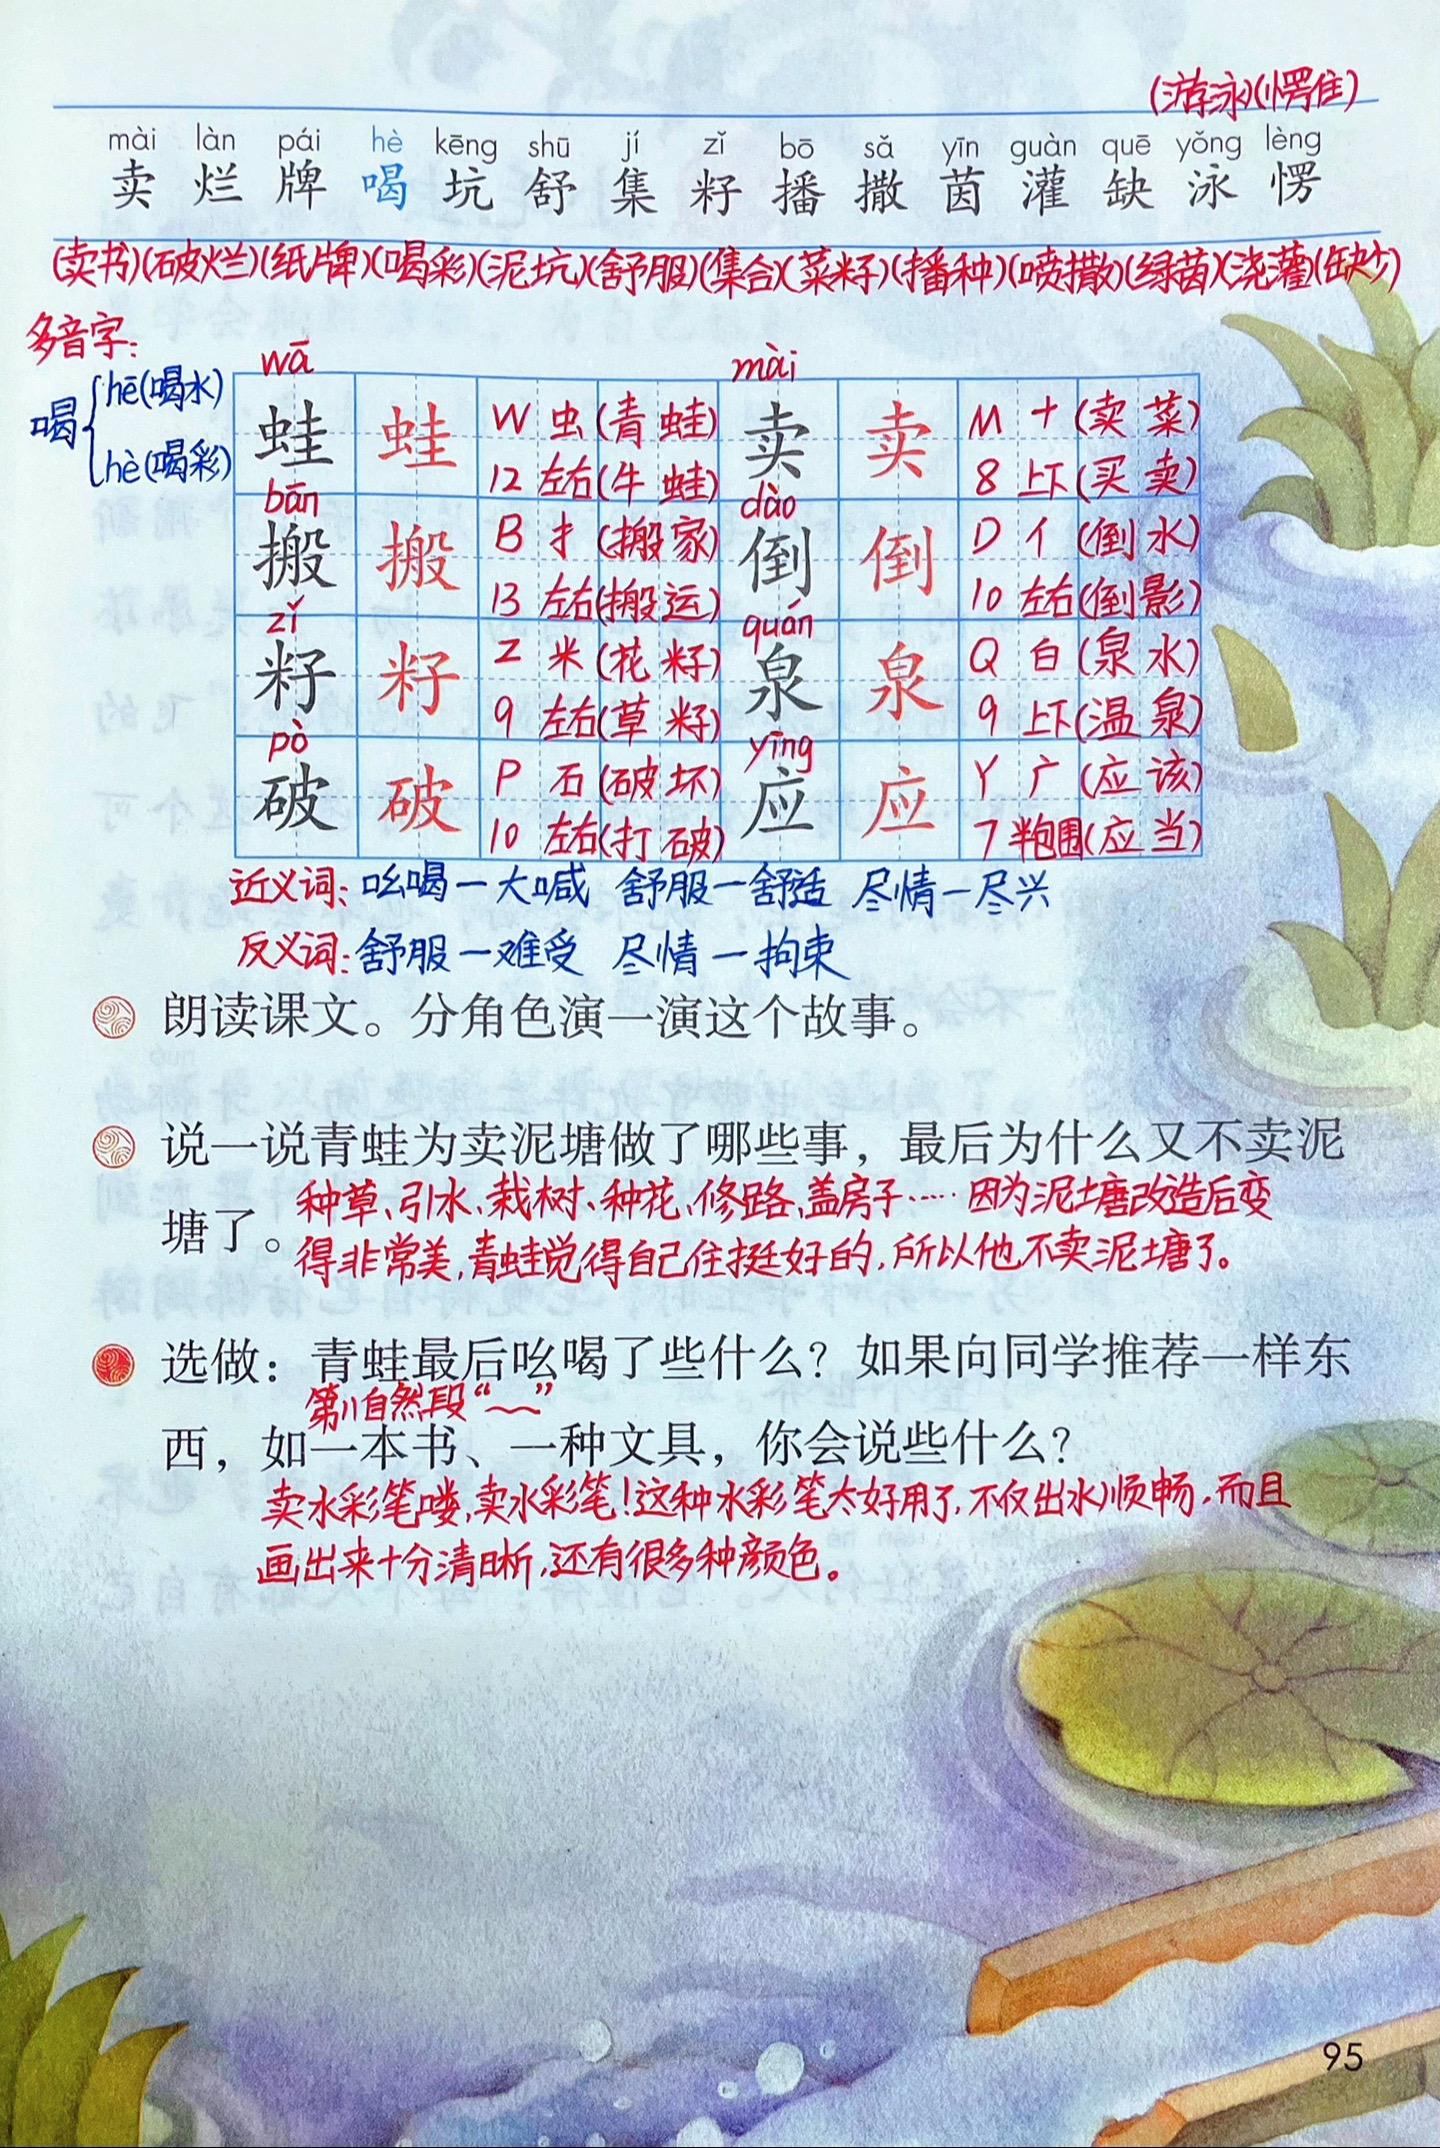 (游泳)(愣住)
mài làn pái hè kēng shū jí zǐ bō sǎ yīn guàn quē yǒng lèng
卖 烂 牌 喝 坑 舒 集 籽 播 撒 茵 灌 缺 泳 愣
(卖书)(破烂)(纸牌)(喝彩)(泥坑)(舒服)(集合)(菜籽)(播种)(喷撒)(绿茵)(浇灌)(缺少)
多音字:
喝 hē(喝水)
hè(喝彩)
wā mài
蛙 蛙 W 虫 (青蛙) 卖 卖 M 十 (卖菜)
12 左右 (牛蛙) 8 上下 (买卖)
bān dào
搬 搬 B 扌 (搬家) 倒 倒 D 亻 (倒水)
13 左右 (搬运) 10 左右 (倒影)
zǐ quán
籽 籽 Z 米 (花籽) 泉 泉 Q 白 (泉水)
9 左右 (草籽) 9 上下 (温泉)
pò yīng
破 破 P 石 (破坏) 应 应 Y 广 (应该)
10 左右 (打破) 7 半包围 (应当)
近义词: 吆喝—大喊 舒服—舒适 尽情—尽兴
反义词: 舒服—难受 尽情—拘束
朗读课文。分角色演一演这个故事。
说一说青蛙为卖泥塘做了哪些事，最后为什么又不卖泥
种草、引水、栽树、种花、修路、盖房子…… 因为泥塘改造后变
塘了。
得非常美,青蛙觉得自己住挺好的,所以他不卖泥塘了。
选做：青蛙最后吆喝了些什么？如果向同学推荐一样东
第11自然段“﹏”
西，如一本书、一种文具，你会说些什么？
卖水彩笔喽,卖水彩笔!这种水彩笔太好用了,不仅出水顺畅,而且
画出来十分清晰,还有很多种颜色。
95